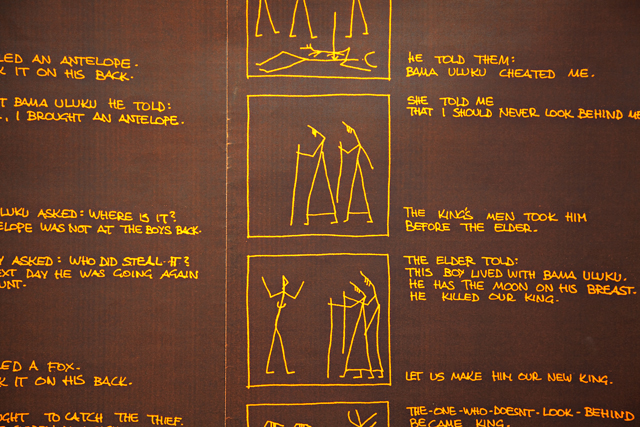 LED AN ANTELOPE.
K IT ON HIS BACK.
T BAMA ULUKU HE TOLD:
., I BROUGHT AN ANTELOPE.
LUKU ASKED: WHERE IS IT?
ELOPE WAS NOT AT THE BOYS BACK.
Y ASKED: WHO DID STEAL IT?
EXT DAY HE WAS GOING AGAIN
UNT.
ED A FOX.
K IT ON HIS BACK.
OUGHT TO CATCH THE THIEF.
HE TOLD THEM:
BAMA ULUKU CHEATED ME.
SHE TOLD ME
THAT I SHOULD NEVER LOOK BEHIND ME
THE KING'S MEN TOOK HIM
BEFORE THE ELDER.
THE ELDER TOLD:
THIS BOY LIVED WITH BAMA ULUKU.
HE HAS THE MOON ON HIS BREAST.
HE KILLED OUR KING.
LET US MAKE HIM OUR NEW KING.
THE-ONE-WHO-DOESNT-LOOK-BEHIND
BECAME KING.